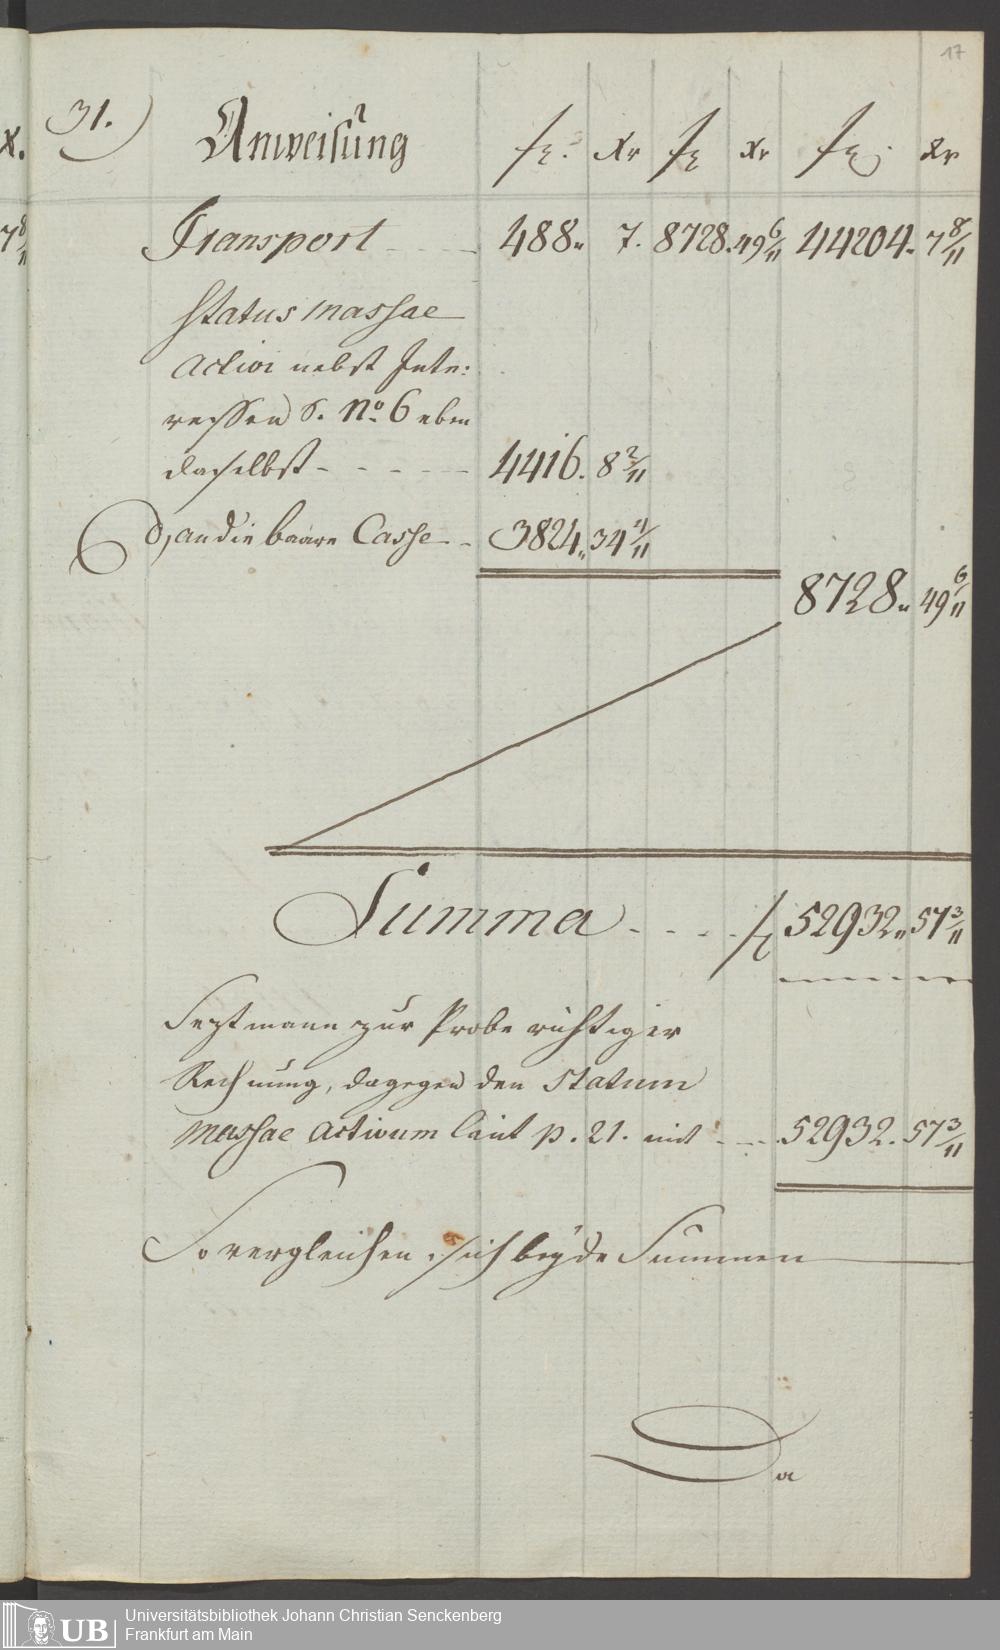 17
X.
31.) Anweisung fl. Xr fl Xr fl. Xr
7 8/11
Transport - - - 488. 7. 8728. 49 6/11 44204. 7 8/11
Status massae
activi nebst Inte:
ressen S. No. 6 eben
daselbst - - - - - 4416. 8 2/11
d, an die baare Casse - 3824. 34 4/11
8728. 49 6/11
Summa - - - - fl 52932. 57 3/11
Sezt mann zur Probe richtiger
Rechnung, dagegen den Statum
massae activum laut p. 21. mit - - - 52932. 57 3/11
So vergleichen sich beyde Summen
Da
UB
Universitätsbibliothek Johann Christian Senckenberg
Frankfurt am Main